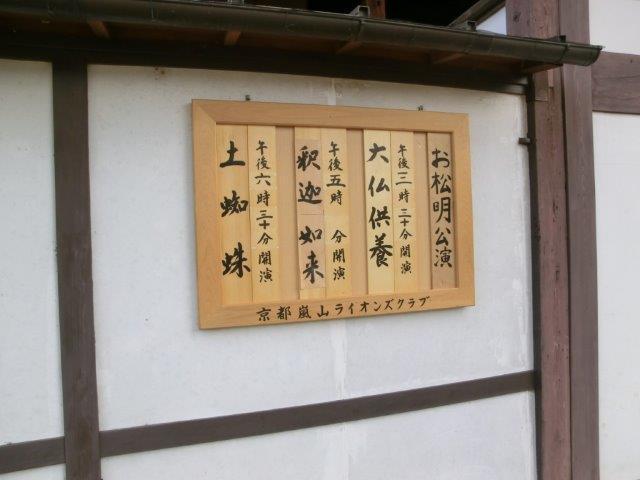 お松明公演
午後三時三十分開演
大仏供養
午後五時 分開演
釈迦如来
午後六時三十分開演
土蜘蛛
京都嵐山ライオンズクラブ